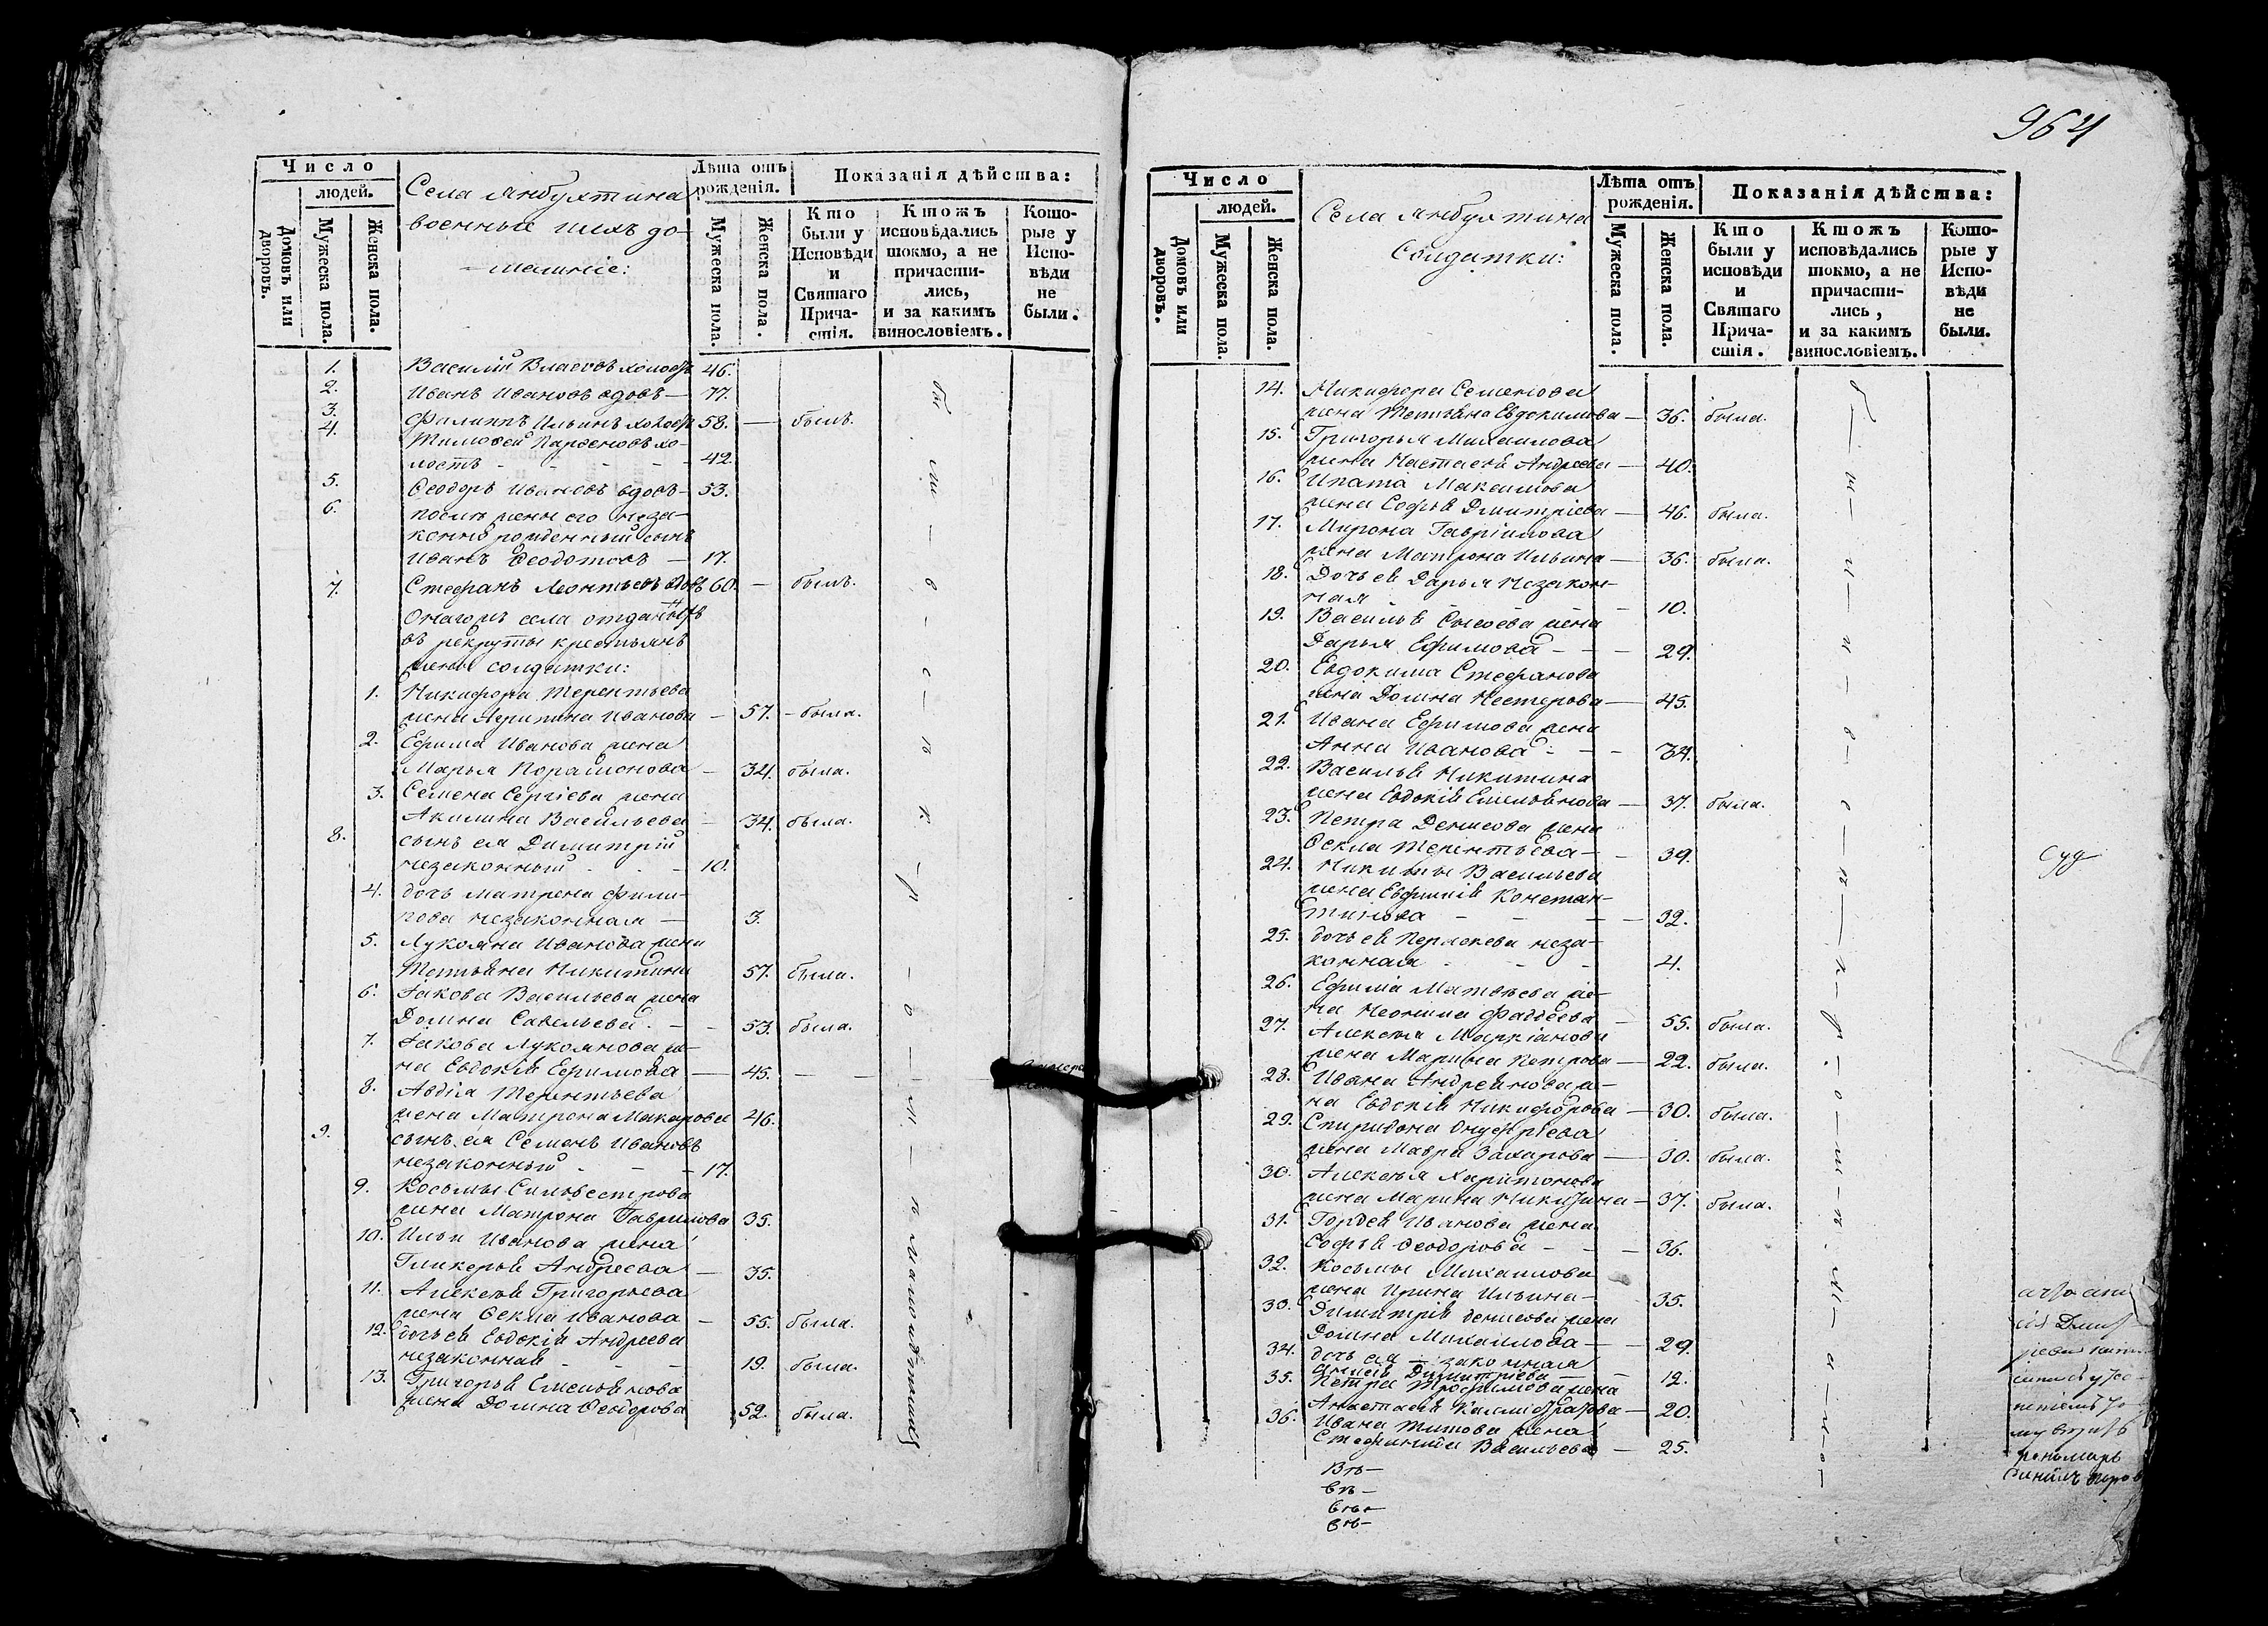 964
Число
людей.
Домовъ или дворовъ.
Мужеска пола.
Женска пола.
Села Янбухтина
военные и ихъ до-
машніе:
Лѣта отъ рожденія.
Мужеска пола.
Женска пола.
Показанія дѣйства:
Кто были у Исповѣди и Святаго Прича-стія.
Ктожъ исповѣдались токмо, а не причасти-лись, и за какимъ винословіемъ.
Кото-рые у Испо-вѣди не были.
1. Василій Власовъ холостъ 46.
2. Иванъ Ивановъ вдовъ — 77.
3. Филиппъ Ильинъ холостъ 58. — былъ.
4. Тимофей Парѳеновъ хо-
лостъ - - - - 42.
5. Ѳеодоръ Ивановъ вдовъ — 53.
6. послѣ жены его неза-
конно рожденный сынъ
Иванъ Ѳеодотовъ — 17.
7. Стефанъ Леонтьевъ вдовъ 60. — былъ.
Онагожъ села отданныхъ
въ рекруты крестьянъ
жены солдатки:
1. Никифора Терентьева
жена Агрипина Иванова — 57. — была.
2. Ефима Иванова жена
Марья — 34. была.
3. Семена Сергіева жена
Акилина Васильева — 34. была.
8. сынъ ея Димитрій
незаконный - - - 10.
4. дочь Матрена Фили-
пова незаконная — 3.
5. Лукояна Иванова жена
Татьяна Никитина 57. была.
6. Іакова Васильева жена
Домна Савельева. — 53. была.
7. Іакова Лукоянова же-
на Евдокія Ефимова — 45. — —
8. Авдія Терентьева
жена Матрена Макарова 46.
9. сынъ ея Семенъ Ивановъ
незаконный - - - 17.
9. Косьмы Сильвестрова
жена Матрона Гаврилова 35.
10. Ильи Иванова жена
Гликерья Андреева — 35.
11. Алексѣя Григорьева
жена Ѳекла Иванова — 55. была.
12. дочь ея Евдокія Андреева
незаконная - - - 19. была.
13. Григорья Емельянова
жена Домна Ѳеодорова 52. была.
Число
людей.
Домовъ или дворовъ.
Мужеска пола.
Женска пола.
Села Янбухтина
Солдатки:
Лѣта отъ рожденія.
Мужеска пола.
Женска пола.
Показанія дѣйства:
Кто были у исповѣди и Святаго Прича-стія.
Ктожъ исповѣдались токмо, а не причасти-лись, и за какимъ винословіемъ.
Кото-рые у Испо-вѣди не были.
14. Никифора Семенова
жена Татьяна Евдокимова — 36. была.
15. Григорья Михаилова
жена Настасья Андреева — 40.
16. Ипата Максимова
жена Софья Дмитріева — 46. была.
17. Мирона Гавріилова
жена Матрона Ильина — 36. была.
18. Дочь ея Дарья Незакон-
ная — 10.
19. Василья Сысоева жена
Дарья Ефимова — — 29.
20. Евдокима Стефанова
жена Домна Нестерова — 45.
21. Ивана Ефимова жена
Анна Иванова - — — 34.
22. Василья Никитина
жена Евдокія Емельянова — 37. была.
23. Петра Денисова жена
Ѳекла Терентьева — — 39.
24. Никиты Васильева
жена Евфимія Констан-
тинова — — — 32.
25. дочь ея Перасковья неза-
конная - - - 4.
26. Ефима Матвѣева же-
на Неонила Фаддеева — 55. была.
27. Алексѣя Маркіанова
жена Марина Петрова — 22. была.
28. Ивана Андреянова же-
на Евдокія Никифорова — 30. была.
29. Спиридона Онуфріева
жена Мавра Захарова — 30. была.
30. Алексѣя Харитонова
жена Марина Никитина — 37. была.
31. Гордея Иванова жена
Софья Ѳеодорова — — 36.
32. Косьмы Михаилова
жена Ирина Ильина — 35.
33. Димитрія Денисова жена
Домна Михаилова — — 29.
34. дочь ея незаконная
Димитріева — 12.
35. Петра Трофимова жена
Анастасья Каллистратова — 20.
36. Ивана Титова жена
Стефанида Васильева — 25.
Суд
пономарь